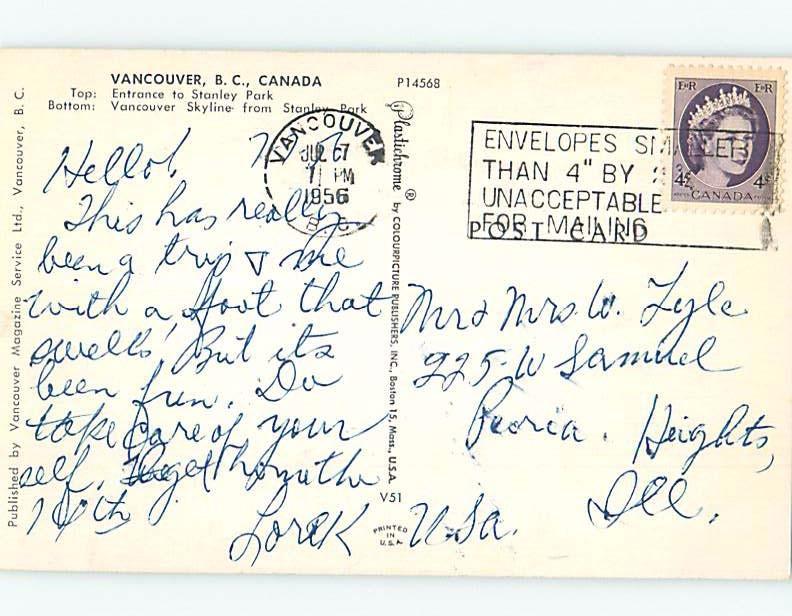 VANCOUVER, B. C., CANADA
Top: Entrance to Stanley Park
Bottom: Vancouver Skyline from Stanley Park
P14568
Published by Vancouver Magazine Service Ltd., Vancouver, B. C.
Plastichrome ® by COLOURPICTURE PUBLISHERS, INC., Boston 15, Mass., U.S.A.
VANCOUVER
JUL 67
1 PM
1956
B. C.
ENVELOPES SMALLER
THAN 4" BY
UNACCEPTABLE
FOR MAILING
POST CARD
E R E R
4¢ 4¢
CANADA
Hello!
This has really
been a trip & me
with a foot that
swells, But its
been fun. Do
take care of your
self. home the
10th
Lora K
Mr & Mrs. W. Lyle
225-W Samuel
Peoria. Heights,
Ill.
U.Sa.
V51
PRINTED
IN
U.S.A.